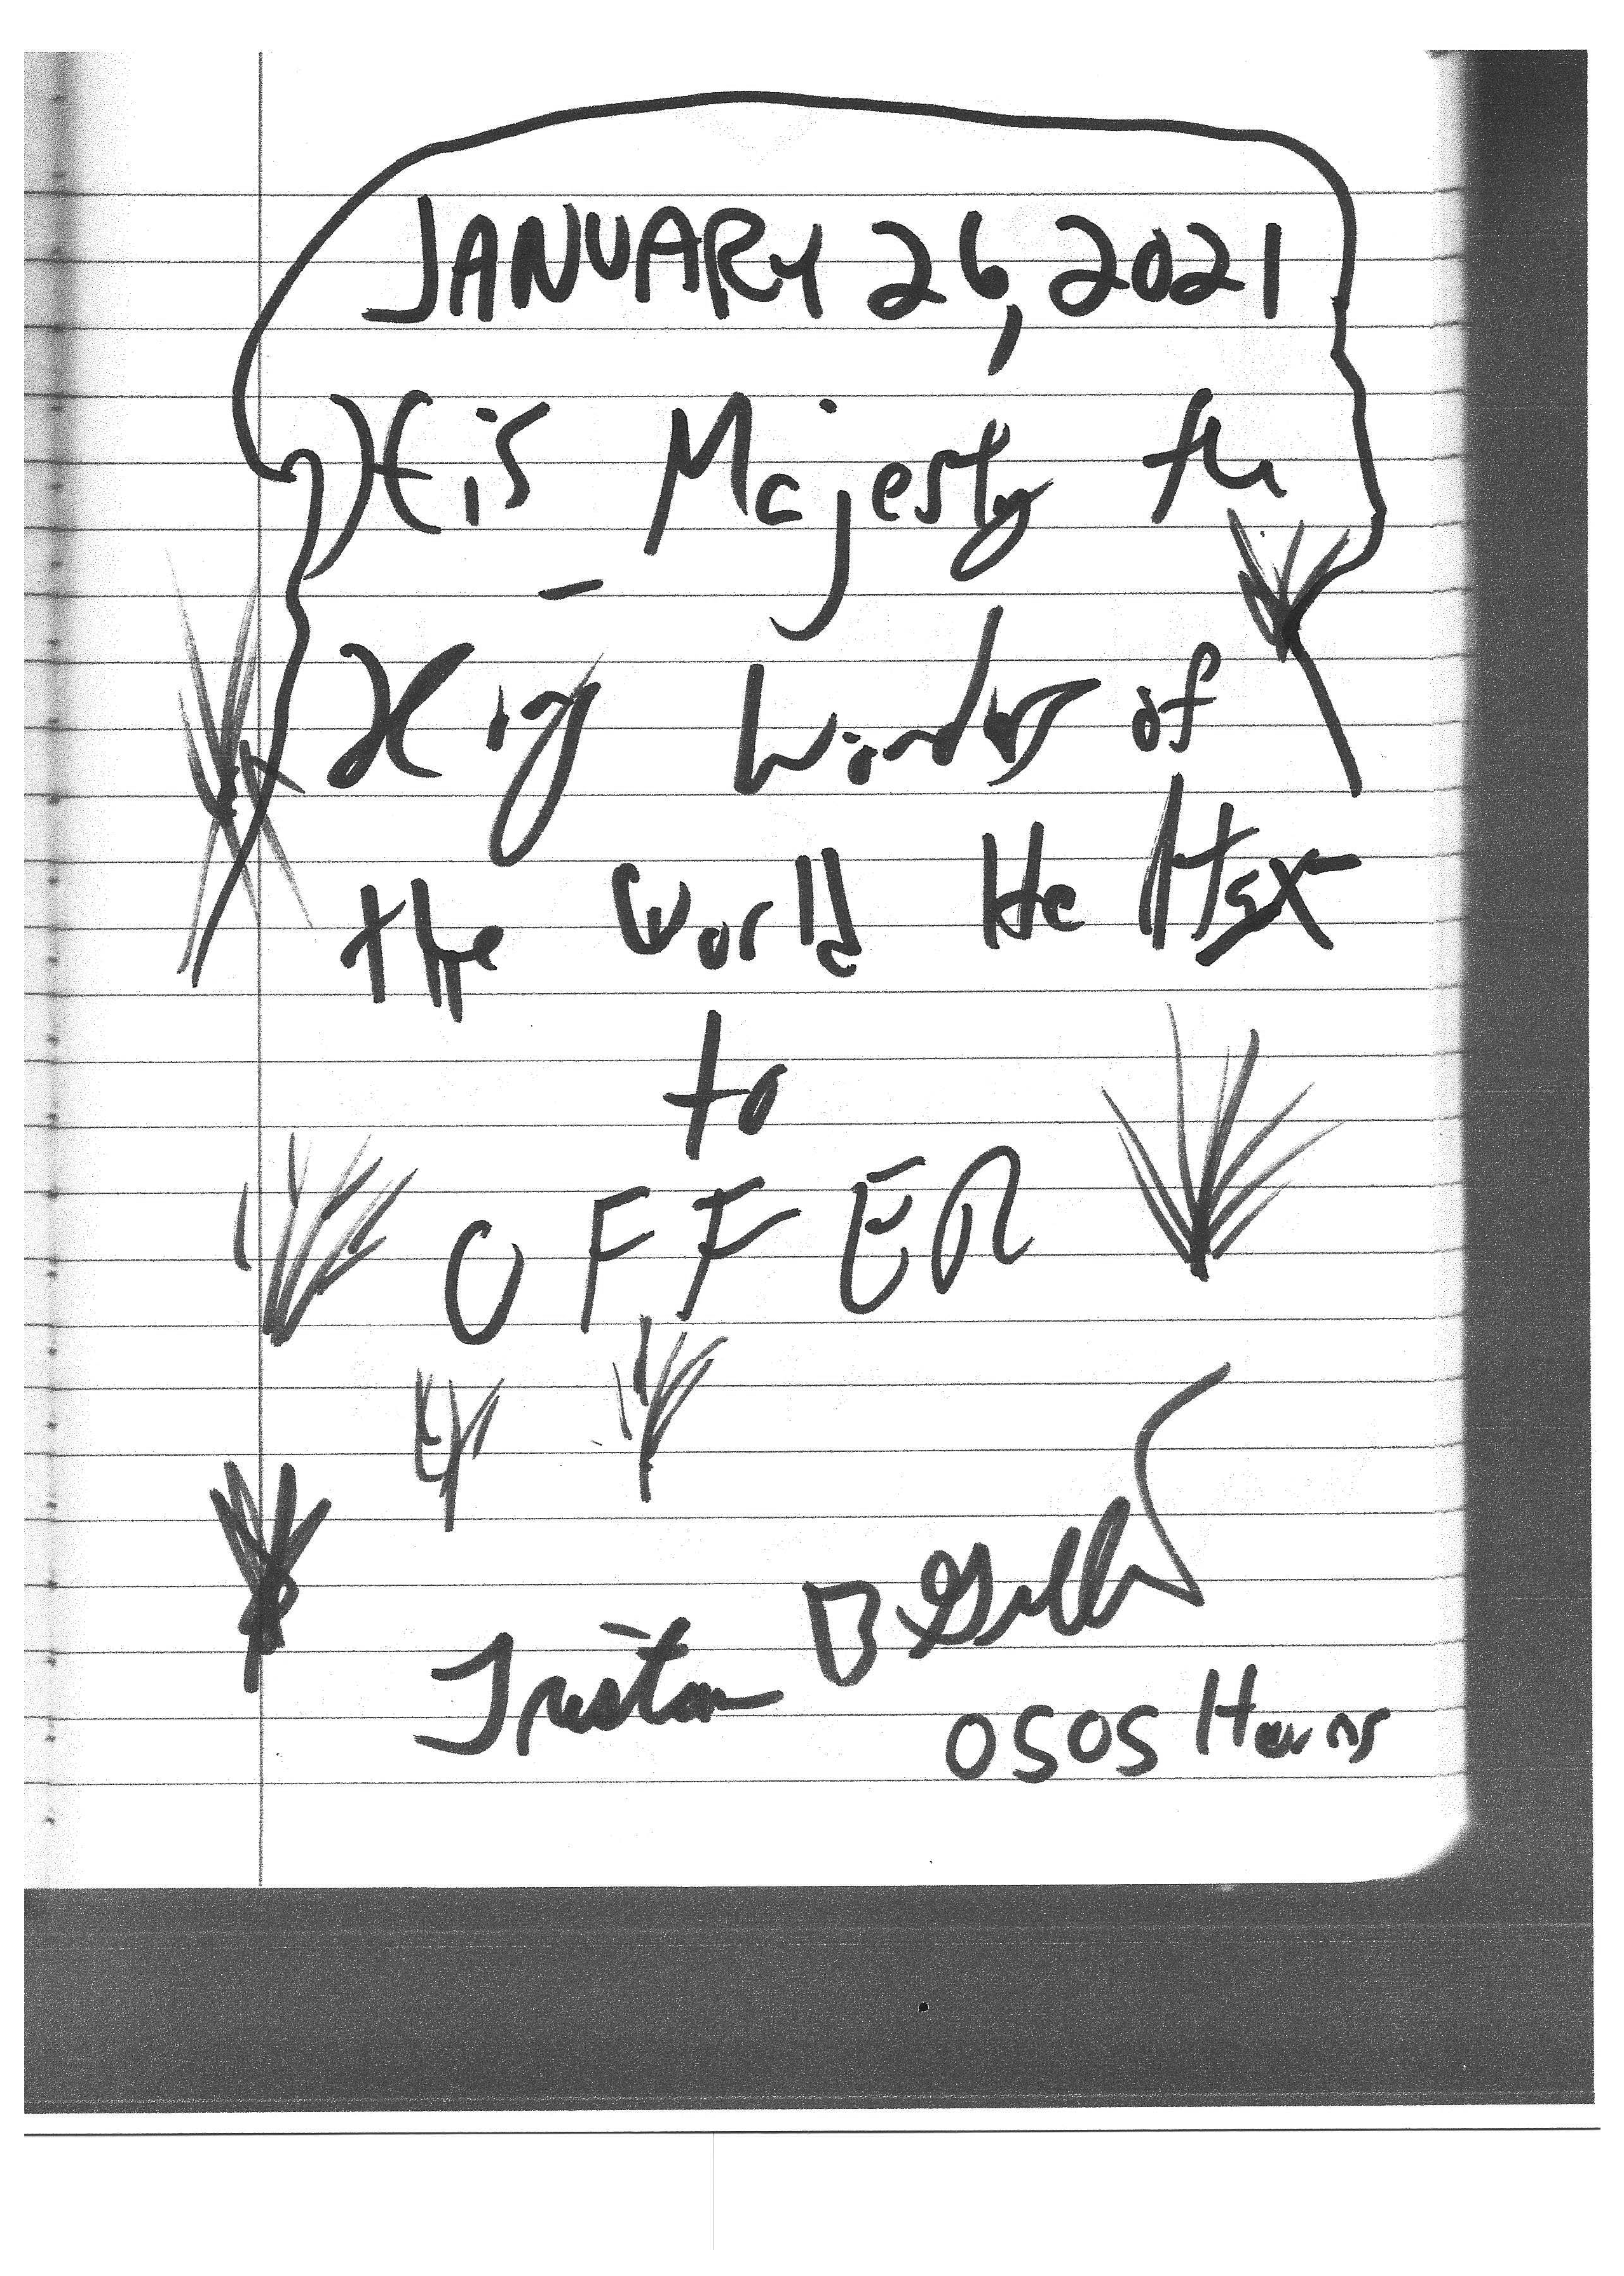 JANUARY 26, 2021
His Majesty the
King Wonders of
the World He
to
OFFER
Tristan B
0505 Hours